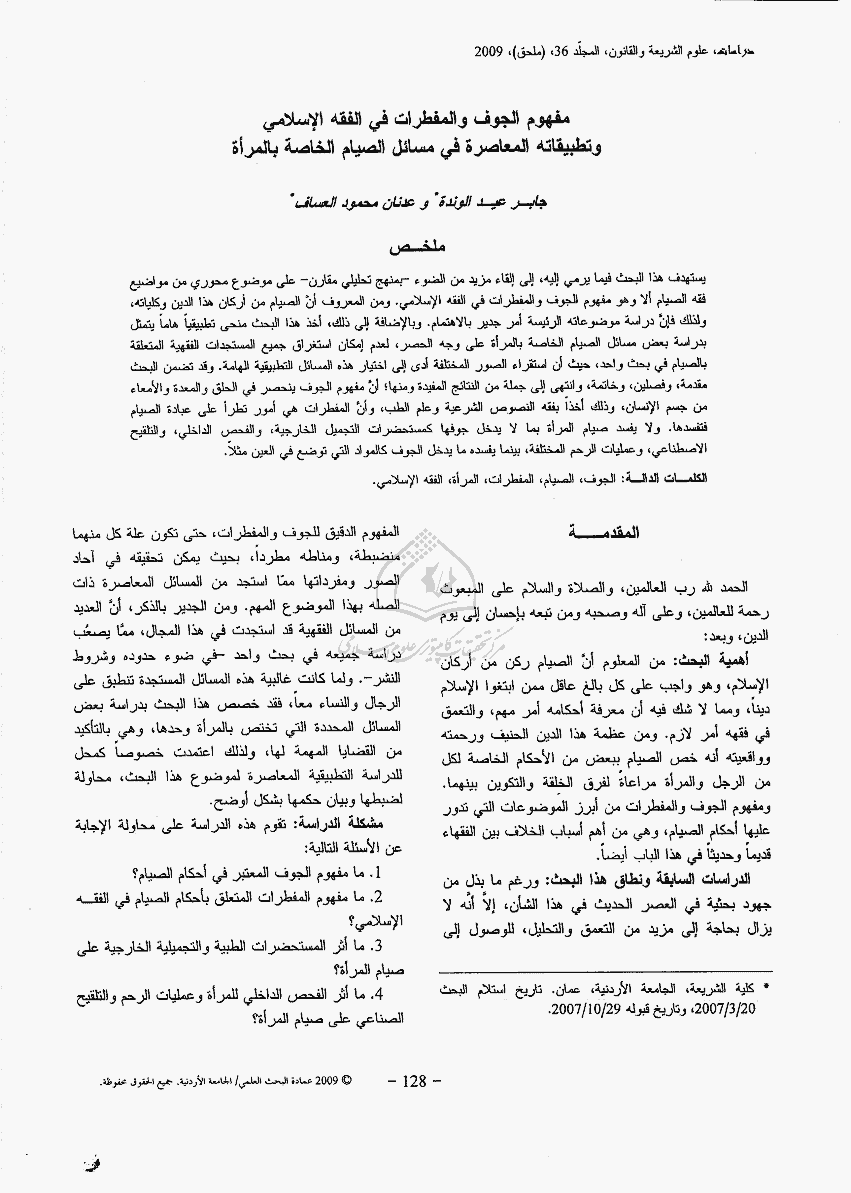 دراسات، علوم الشريعة والقانون، المجلّد 36، (ملحق)، 2009
مفهوم الجوف والمفطرات في الفقه الإسلامي
وتطبيقاته المعاصرة في مسائل الصيام الخاصة بالمرأة
جابر عيد الوندة* و عدنان محمود العساف*
ملخـص
يستهدف هذا البحث فيما يرمي إليه، إلى إلقاء مزيد من الضوء -بمنهج تحليلي مقارن- على موضوع محوري من مواضيع
فقه الصيام ألا وهو مفهوم الجوف والمفطرات في الفقه الإسلامي. ومن المعروف أنّ الصيام من أركان هذا الدين وكلياته،
ولذلك فإنّ دراسة موضوعاته الرئيسة أمر جدير بالاهتمام. وبالإضافة إلى ذلك، أخذ هذا البحث منحى تطبيقياً هاماً يتمثل
بدراسة بعض مسائل الصيام الخاصة بالمرأة على وجه الحصر، لعدم إمكان استغراق جميع المستجدات الفقهية المتعلقة
بالصيام في بحث واحد، حيث أن استقراء الصور المختلفة أدى إلى اختيار هذه المسائل التطبيقية الهامة. وقد تضمن البحث
مقدمة، وفصلين، وخاتمة، وانتهى إلى جملة من النتائج المفيدة ومنها؛ أنّ مفهوم الجوف ينحصر في الحلق والمعدة والأمعاء
من جسم الإنسان، وذلك أخذاً بفقه النصوص الشرعية وعلم الطب، وأنّ المفطرات هي أمور تطرأ على عبادة الصيام
فتفسدها. ولا يفسد صيام المرأة بما لا يدخل جوفها كمستحضرات التجميل الخارجية، والفحص الداخلي، والتلقيح
الاصطناعي، وعمليات الرحم المختلفة، بينما يفسده ما يدخل الجوف كالمواد التي توضع في العين مثلاً.
الكلمـات الدالـة: الجوف، الصيام، المفطرات، المرأة، الفقه الإسلامي.
المقدمـــة
الحمد لله رب العالمين، والصلاة والسلام على المبعوث
رحمة للعالمين، وعلى آله وصحبه ومن تبعه بإحسان إلى يوم
الدين، وبعد:
أهمية البحث: من المعلوم أنّ الصيام ركن من أركان
الإسلام، وهو واجب على كل بالغ عاقل ممن ابتغوا الإسلام
ديناً، ومما لا شك فيه أن معرفة أحكامه أمر مهم، والتعمق
في فقهه أمر لازم. ومن عظمة هذا الدين الحنيف ورحمته
وواقعيته أنه خص الصيام ببعض من الأحكام الخاصة لكل
من الرجل والمرأة مراعاةً لفرق الخلقة والتكوين بينهما.
ومفهوم الجوف والمفطرات من أبرز الموضوعات التي تدور
عليها أحكام الصيام، وهي من أهم أسباب الخلاف بين الفقهاء
قديماً وحديثاً في هذا الباب أيضاً.
الدراسات السابقة ونطاق هذا البحث: ورغم ما بذل من
جهود بحثية في العصر الحديث في هذا الشأن، إلاّ أنّه لا
يزال بحاجة إلى مزيد من التعمق والتحليل، للوصول إلى
* كلية الشريعة، الجامعة الأردنية، عمان. تاريخ استلام البحث
2007/3/20، وتاريخ قبوله 2007/10/29.
المفهوم الدقيق للجوف والمفطرات، حتى تكون علة كل منهما
منضبطة، ومناطه مطرداً، بحيث يمكن تحقيقه في آحاد
الصور ومفرداتها ممّا استجد من المسائل المعاصرة ذات
الصله بهذا الموضوع المهم. ومن الجدير بالذكر، أنّ العديد
من المسائل الفقهية قد استجدت في هذا المجال، ممّا يصعُب
دراسة جميعه في بحث واحد -في ضوء حدوده وشروط
النشر-. ولما كانت غالبية هذه المسائل المستجدة تنطبق على
الرجال والنساء معاً، فقد خصص هذا البحث بدراسة بعض
المسائل المحددة التي تختص بالمرأة وحدها، وهي بالتأكيد
من القضايا المهمة لها، ولذلك اعتمدت خصوصاً كمحل
للدراسة التطبيقية المعاصرة لموضوع هذا البحث، محاولة
لضبطها وبيان حكمها بشكل أوضح.
مشكلة الدراسة: تقوم هذه الدراسة على محاولة الإجابة
عن الأسئلة التالية:
1. ما مفهوم الجوف المعتبر في أحكام الصيام؟
2. ما مفهوم المفطرات المتعلق بأحكام الصيام في الفقـه
الإسلامي؟
3. ما أثر المستحضرات الطبية والتجميلية الخارجية على
صيام المرأة؟
4. ما أثر الفحص الداخلي للمرأة وعمليات الرحم والتلقيح
الصناعي على صيام المرأة؟
- 128 -
© 2009 عمادة البحث العلمي/ الجامعة الأردنية. جميع الحقوق محفوظة.